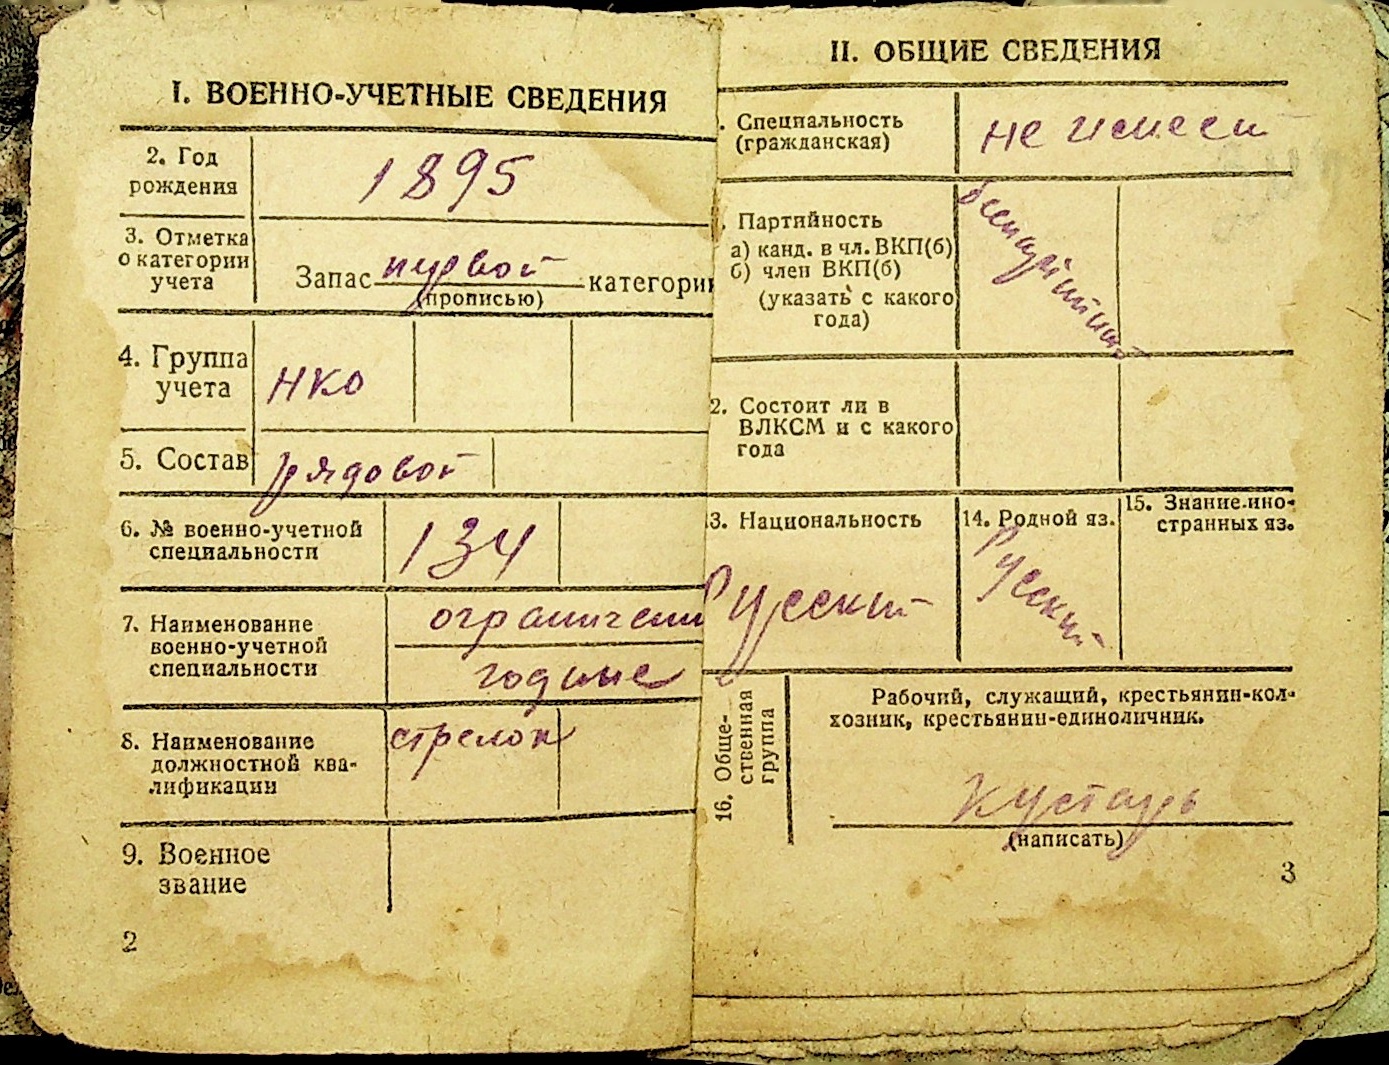 I. ВОЕННО-УЧЕТНЫЕ СВЕДЕНИЯ
2. Год
рождения
1895
3. Отметка
о категории
учета
Запас первой категори
(прописью)
4. Группа
учета
НКО
5. Состав
рядовой
6. № военно-учетной
специальности
134
7. Наименование
военно-учетной
специальности
ограничени
годные
8. Наименование
должностной ква-
лификации
стрелок
9. Военное
звание
2
II. ОБЩИЕ СВЕДЕНИЯ
. Специальность
(гражданская)
не имеет
. Партийность
а) канд. в чл. ВКП(б)
б) член ВКП(б)
(указать с какого
года)
беспартийный
2. Состоит ли в
ВЛКСМ и с какого
года
3. Национальность
Русский
14. Родной яз.
Русский
15. Знание ино-
странных яз.
16. Обще-
ственная
группа
Рабочий, служащий, крестьянин-кол-
хозник, крестьянин-единоличник.
Кустарь
(написать)
3